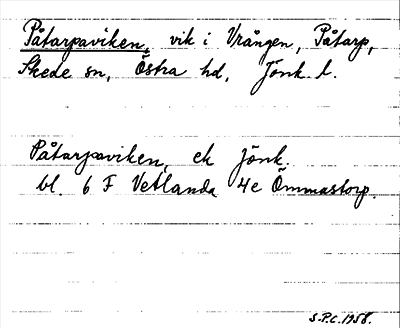 Påtarpaviken, vik i Vrången, Påtarp,
Skede sn, Östra hd, Jönk l.
Påtarpaviken, ek Jönk.
bl. 6 F Vetlanda 4e Ömmastorp.
S.P.C. 1958.